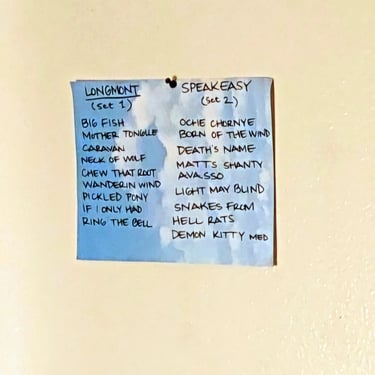 LONGMONT
(SET 1)
BIG FISH
MOTHER TONGUE
CARAVAN
NECK OF WOLF
CHEW THAT ROOT
WANDERIN WIND
PICKLED PONY
IF I ONLY HAD
RING THE BELL
SPEAKEASY
(SET 2)
OCHIE CHORNYE
BORN OF THE WIND
DEATH'S NAME
MATT'S SHANTY
AVASSO
LIGHT MAY BLIND
SNAKES FROM
HELL RATS
DEMON KITTY MED